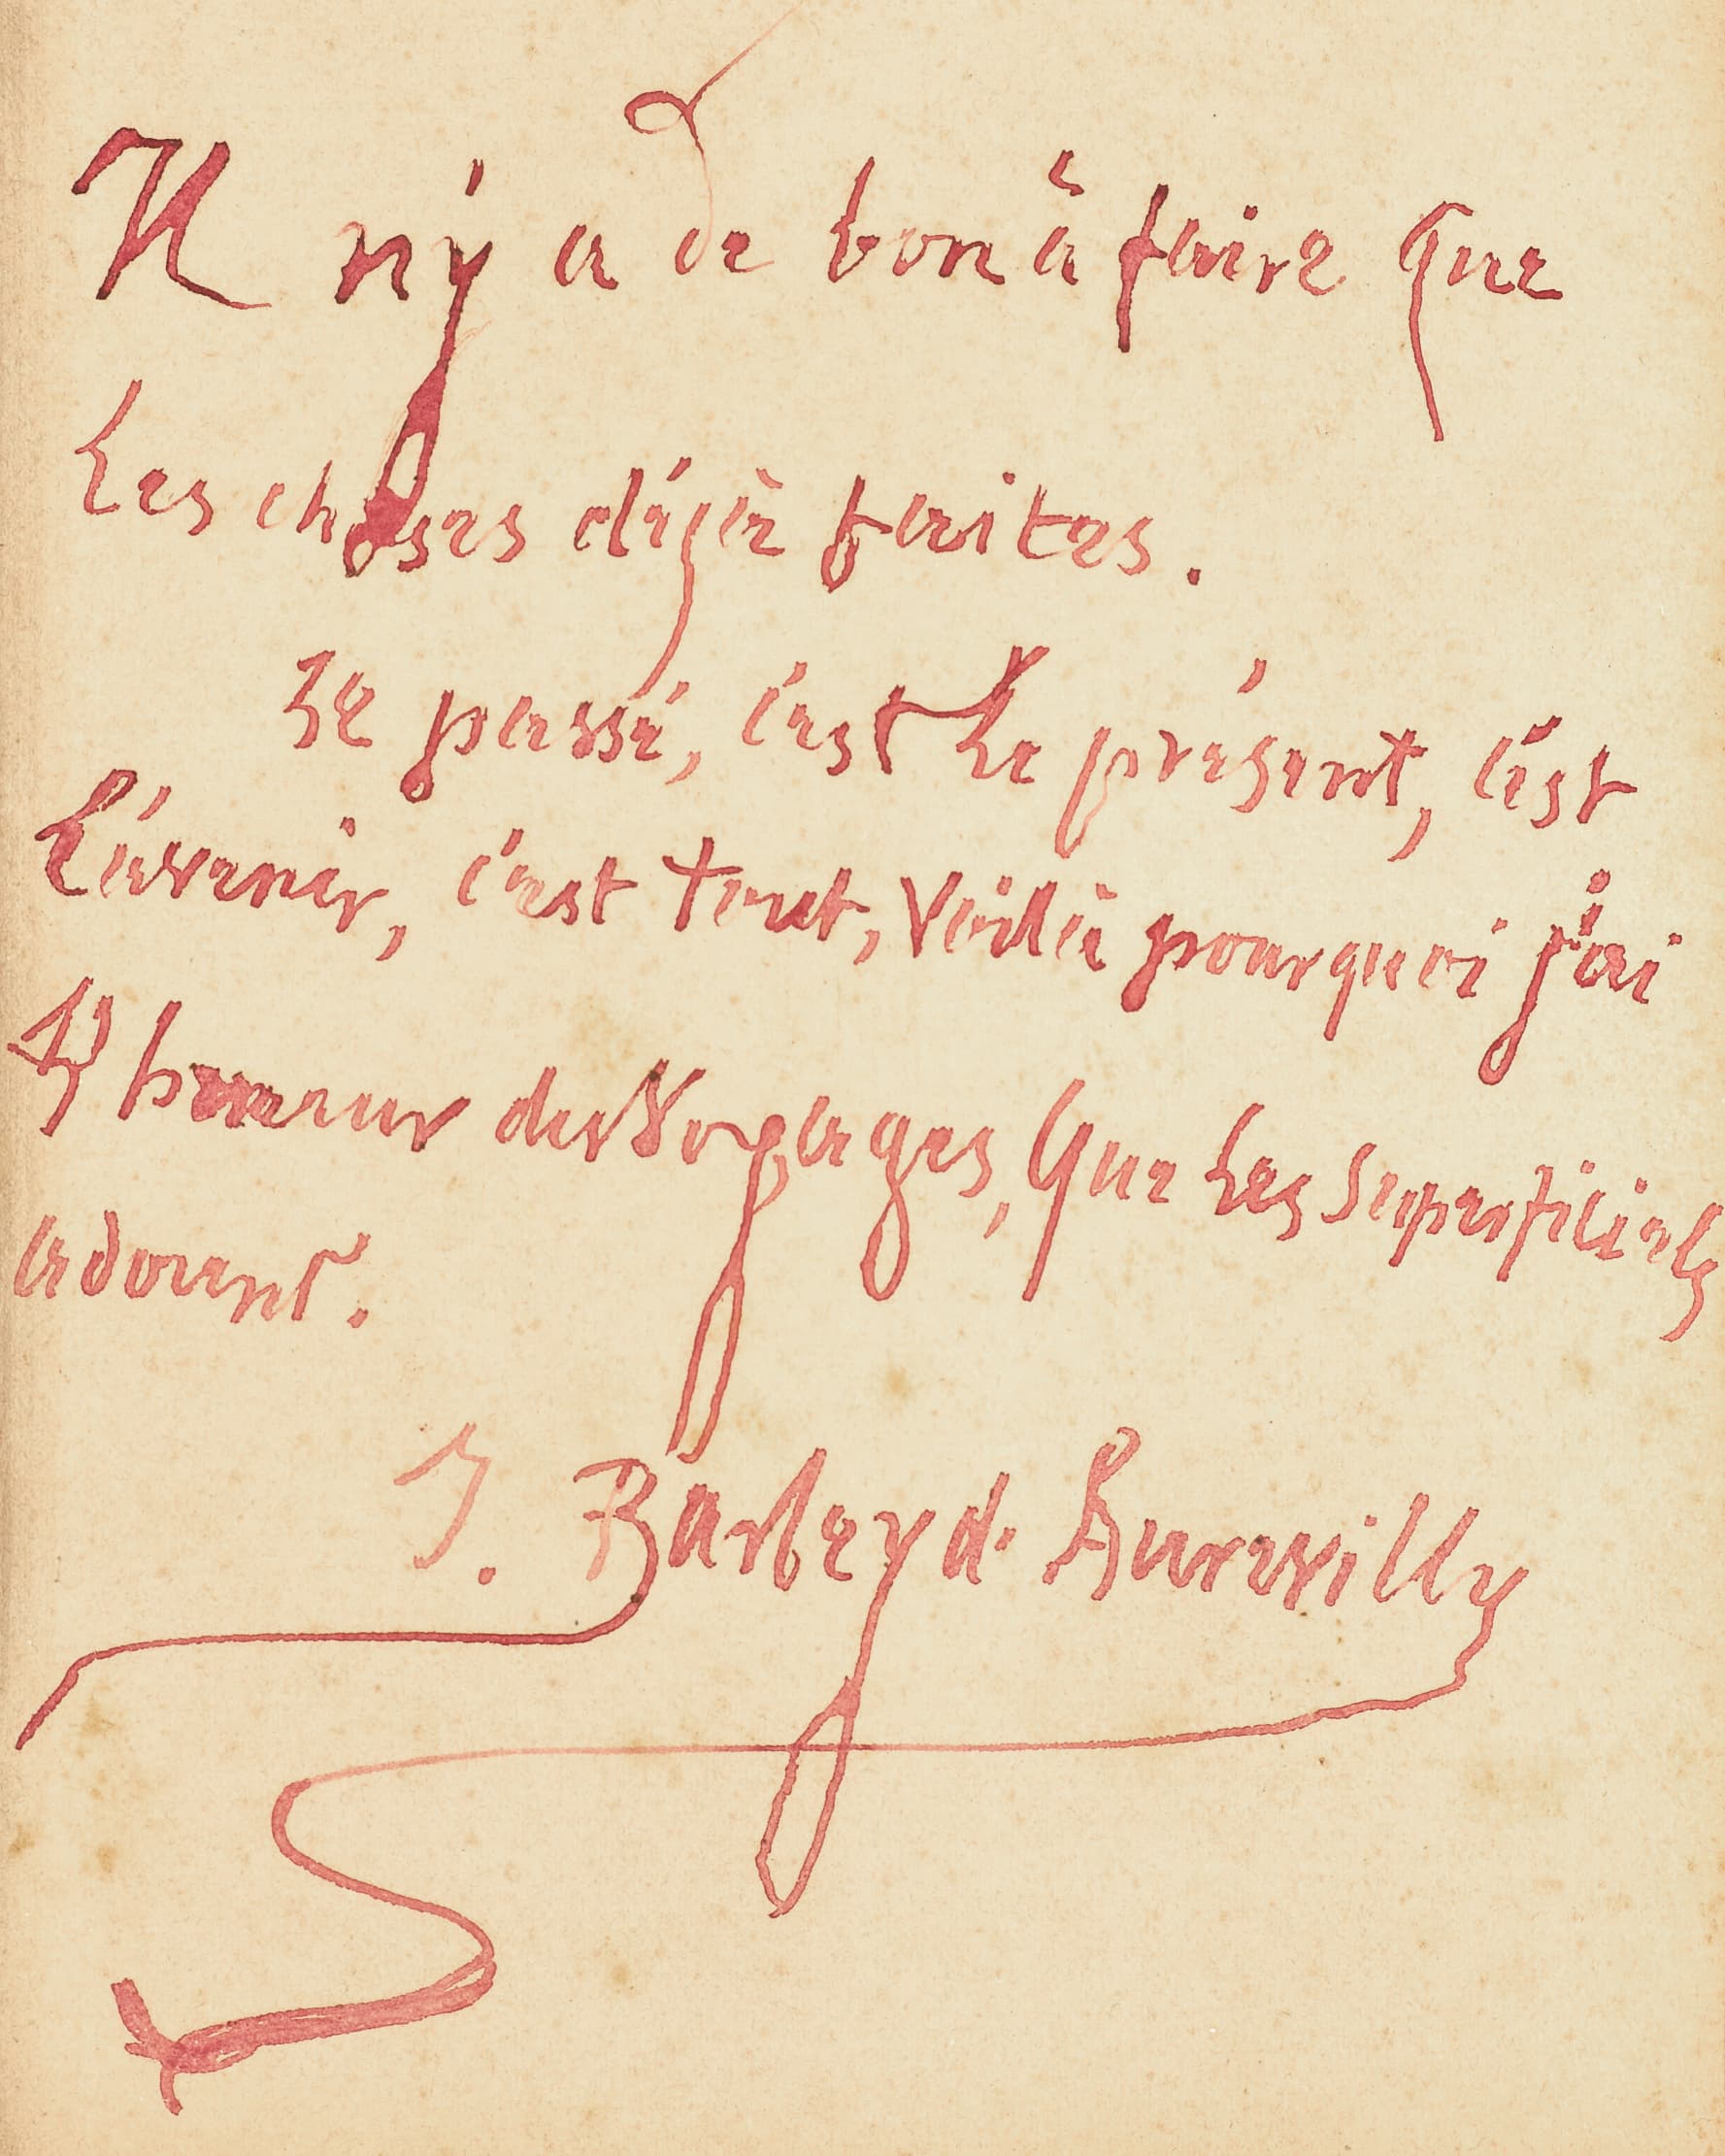 Il n'y a de bon à faire Que
Les choses déjà faites.
Le passé, c'est Le présent, c'est
L'avenir, c'est tout, Voilà pourquoi j'ai
L'horreur des Voyages, Que Les Superficiels
adorent.
J. Barbey d'Aurevilly